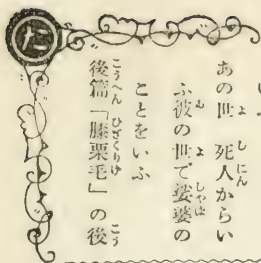 あの世 死人からい
ふ彼の世で娑婆の
ことをいふ
後篇「膝栗毛」の後
た